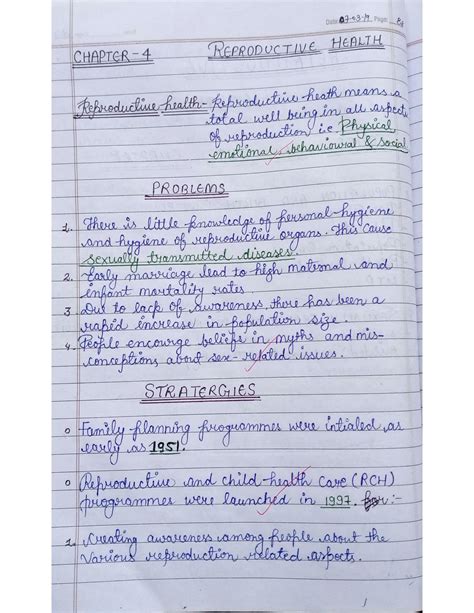 Date 07-03-19 Page
CHAPTER-4 REPRODUCTIVE HEALTH
Reproductive health - Reproductive heath means a
total well being in all aspects
of reproduction i.e Physical
emotional, behavioural & social
PROBLEMS
1. There is little knowledge of personal-hygiene
and hygiene of reproductive organs. This cause
sexually transmitted diseases.
2. Early marriage lead to high maternal and
infant mortality rates
3. Due to lack of awareness there has been a
rapid increase in population size.
4. People encourge beliefs in myths and mis-
conceptions about sex-related issues.
STRATERGIES
o Family planning programmes were intialed as
early as 1951.
o Reproductive and child-health care (RCH)
programmes were launched in 1997. for :-
1. Creating awareness among people about the
various reproduction related aspects.